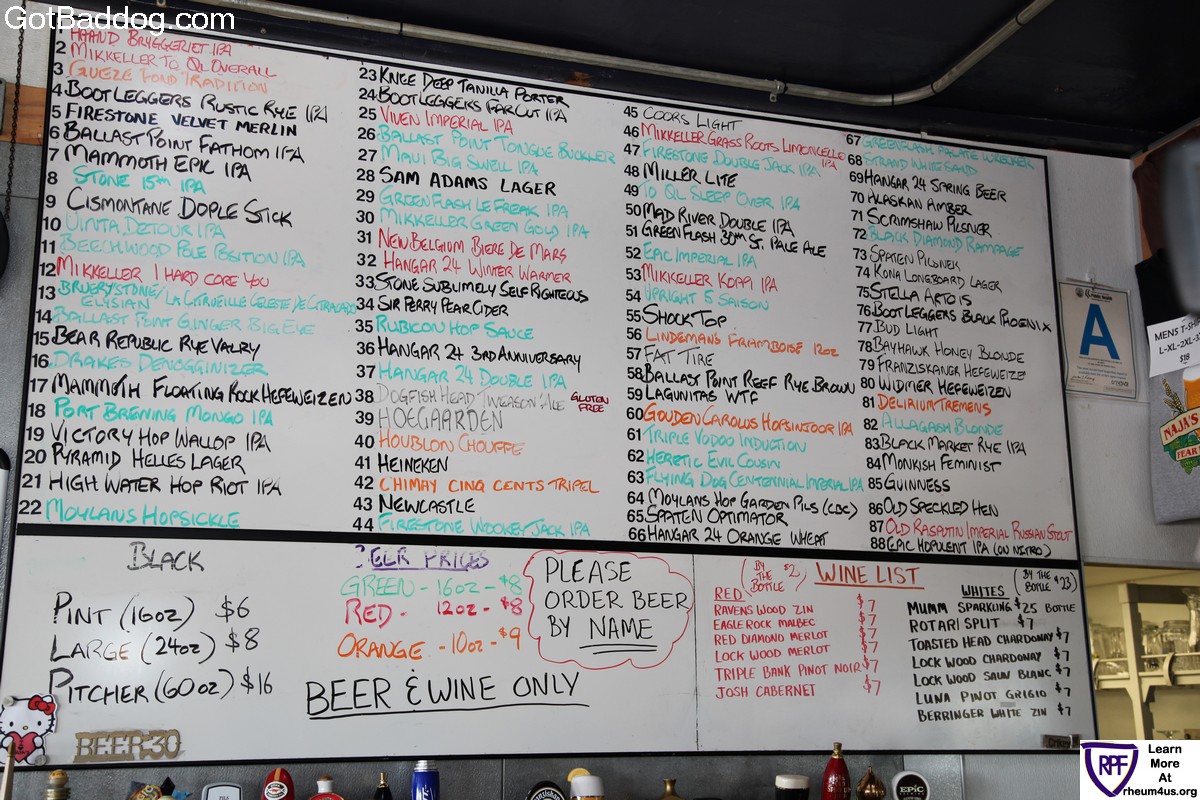 GotBaddog.com
HAAND BRYGGERIET IPA
2 MIKKELLER TO QL OVERALL
3 GUEZE FOND TRADITION
4 BOOTLEGGERS RUSTIC RYE IPA
5 FIRESTONE VELVET MERLIN
6 BALLAST POINT FATHOM IPA
7 MAMMOTH EPIC IPA
8 STONE 15th IPA
9 CISMONTANE DOPLE STICK
10 UINTA DETOUR IPA
11 BEECHWOOD POLE POSITION IPA
12 MIKKELLER I HARD CORE YOU
13 BRUERY/STONE/ELYSIAN / LA CITRUEILLE CELESTE DE CITRACADO
14 BALLAST POINT GINGER BIG EYE
15 BEAR REPUBLIC RYE VALRY
16 DRAKES DENOGGINIZER
17 MAMMOTH FLOATING ROCK HEFEWEIZEN
18 PORT BREWING MONGO IPA
19 VICTORY HOP WALLOP IPA
20 PYRAMID HELLES LAGER
21 HIGH WATER HOP RIOT IPA
22 MOYLANS HOPSICKLE
23 KNEE DEEP TANILLA PORTER
24 BOOTLEGGERS FAR OUT IPA
25 VIVEN IMPERIAL IPA
26 BALLAST POINT TONGUE BUCKLER
27 MAUI BIG SWELL IPA
28 SAM ADAMS LAGER
29 GREEN FLASH LE FREAK IPA
30 MIKKELLER GREEN GOLD IPA
31 NEW BELGIUM BIERE DE MARS
32 HANGAR 24 WINTER WARMER
33 STONE SUBLIMELY SELF RIGHTEOUS
34 SIR PERRY PEAR CIDER
35 RUBICON HOP SAUCE
36 HANGAR 24 3RD ANNIVERSARY
37 HANGAR 24 DOUBLE IPA
38 DOGFISH HEAD TWEASON'ALE GLUTEN FREE
39 HOEGAARDEN
40 HOUBLON CHOUFFE
41 HEINEKEN
42 CHIMAY CINQ CENTS TRIPEL
43 NEWCASTLE
44 FIRESTONE WOOKEY JACK IPA
45 COORS LIGHT
46 MIKKELLER GRASS ROOTS LIMONCELLO IPA
47 FIRESTONE DOUBLE JACK IPA
48 MILLER LITE
49 TO QL SLEEP OVER IPA
50 MAD RIVER DOUBLE IPA
51 GREEN FLASH 30th ST. PALE ALE
52 EPIC IMPERIAL IPA
53 MIKKELLER KOPPI IPA
54 UPRIGHT 5 SAISON
55 SHOCK TOP
56 LINDEMANS FRIAMBOISE 12oz
57 FAT TIRE
58 BALLAST POINT REEF RYE BROWN
59 LAGUNITAS WTF
60 GOUDEN CAROLUS HOPSINJOOR IPA
61 TRIPLE VODOO INDUCTION
62 HERETIC EVIL COUSIN
63 FLYING DOG CENTENNIAL IMPERIAL IPA
64 MOYLANS HOP GARDEN PILS (CBC)
65 SPATEN OPTIMATOR
66 HANGAR 24 ORANGE WHEAT
67 GREENFLASH PALATE WRECKER
68 STRAND WHITE SAND
69 HANGAR 24 SPRING BEER
70 ALASKAN AMBER
71 SCRIMSHAW PILSNER
72 BLACK DIAMOND RAMPAGE
73 SPATEN PILSNER
74 KONA LONGBOARD LAGER
75 STELLA ARTOIS
76 BOOTLEGGERS BLACK PHOENIX
77 BUD LIGHT
78 BAYHAWK HONEY BLONDE
79 FRANZISKANER HEFEWEIZE
80 WIDMER HEFEWEIZEN
81 DELIRIUM TREMENS
82 ALLAGASH BLONDE
83 BLACK MARKET RYE IPA
84 MONKISH FEMINIST
85 GUINNESS
86 OLD SPECKLED HEN
87 OLD RASPUTIN IMPERIAL RUSSIAN STOUT
88 EPIC HOPULENT IPA (ON NITRO)
BLACK
PINT (16oz) $6
LARGE (24oz) $8
PITCHER (60oz) $16
BEER PRICES
GREEN - 16oz - $8
RED - 12oz - $8
ORANGE - 10oz - $9
BEER & WINE ONLY
PLEASE
ORDER BEER
BY NAME
WINE LIST
RED
RAVENSWOOD ZIN $7
EAGLE ROCK MALBEC $7
RED DIAMOND MERLOT $7
LOCK WOOD MERLOT $7
TRIPLE BANK PINOT NOIR $7
JOSH CABERNET $7
WHITES (BY THE BOTTLE $23)
MUMM SPARKLING $25 BOTTLE
ROTARI SPLIT $7
TOASTED HEAD CHARDONAY $7
LOCK WOOD CHARDONAY $7
LOCK WOOD SAUV BLANC $7
LUNA PINOT GRIGIO $7
BERRINGER WHITE ZIN $7
BEER:30
A
MENS T-S
L-XL-2XL-3
$18
NAJA'S
EPIC
RPF
Learn
More
At
rheum4us.org